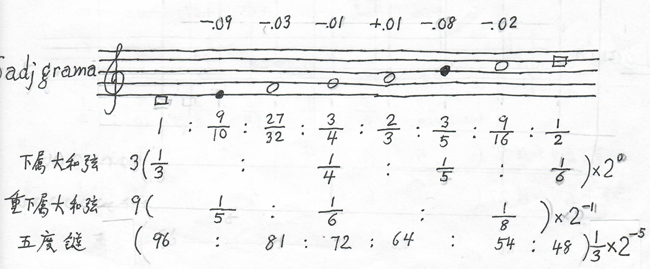 -.09 -.03 -.01 +.01 -.08 -.02
Sadjgrama
1 : 9/10 : 27/32 : 3/4 : 2/3 : 3/5 : 9/16 : 1/2
下属大和弦 3(1/3 : 1/4 : 1/5 : 1/6)×2⁰
重下属大和弦 9(1/5 : 1/6 : 1/8)×2⁻¹
五度链 (96 : 81 : 72 : 64 : 54 : 48)1/3×2⁻⁵